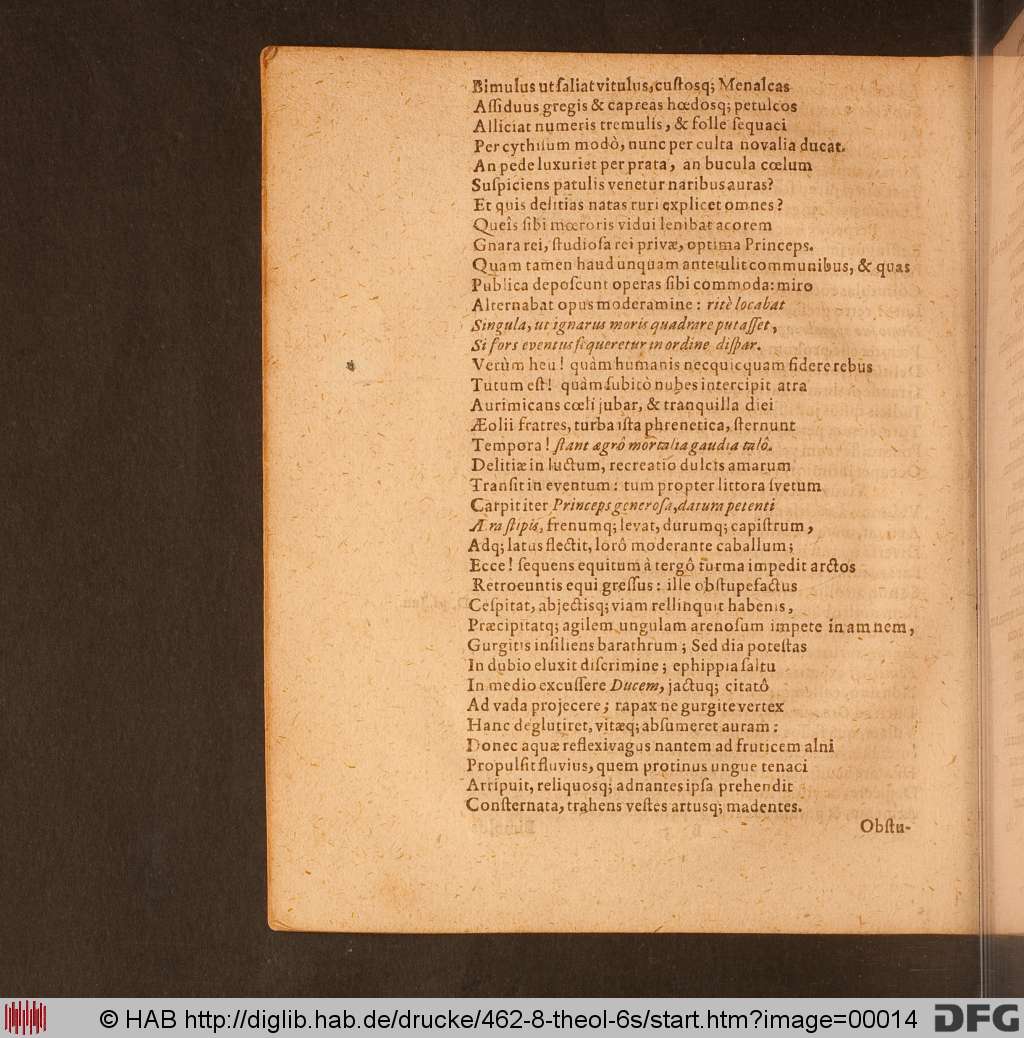 Bimulus ut ſaliat vitulus, cuſtosq; Menalcas
Aſſiduus gregis & capreas hœdosq; petulcos
Alliciat numeris tremulis, & folle ſequaci
Per cythiſum modò, nunc per culta novalia ducat.
An pede luxuriet per prata, an bucula cœlum
Suſpiciens patulis venetur naribus auras?
Et quis delitias natas ruri explicet omnes?
Queîs ſibi mœroris vidui lenibat acorem
Gnara rei, ſtudioſa rei privæ, optima Princeps.
Quam tamen haud unquam antetulit communibus, & quas
Publica depoſcunt operas ſibi commoda: miro
Alternabat opus moderamine: ritè locabat
Singula, ut ignarus moris quadrare putaſſet,
Si fors eventus ſequeretur in ordine diſpar.
Verùm heu! quàm humanis necquicquam fidere rebus
Tutum eſt! quàm ſubitò nubes intercipit atra
Aurimicans cœli jubar, & tranquilla diei
Æolii fratres, turba iſta phrenetica, ſternunt
Tempora! ſtant ægrô mortalia gaudia talô.
Delitiæ in luctum, recreatio dulcis amarum
Tranſit in eventum: tum propter littora ſvetum
Carpit iter Princeps generoſa, datura petenti
Æra ſtipis, frenumq; levat, durumq; capiſtrum,
Adq; latus flectit, lorô moderante caballum;
Ecce! ſequens equitum à tergô turma impedit arctos
Retroeuntis equi greſſus: ille obſtupefactus
Ceſpitat, abjectisq; viam relinquit habenis,
Præcipitatq; agilem ungulam arenoſum impete in amnem,
Gurgitis inſiliens barathrum; Sed dia poteſtas
In dubio eluxit diſcrimine; ephippia ſaltu
In medio excuſſere Ducem, jactuq; citatô
Ad vada projecere; rapax ne gurgite vertex
Hanc deglutiret, vitæq; abſumeret auram:
Donec aquæ reflexivagus nantem ad fruticem alni
Propulſit fluvius, quem protinus ungue tenaci
Arripuit, reliquosq; adnantes ipſa prehendit
Conſternata, trahens veſtes artusq; madentes.
Obſtu-
© HAB http://diglib.hab.de/drucke/462-8-theol-6s/start.htm?image=00014
DFG